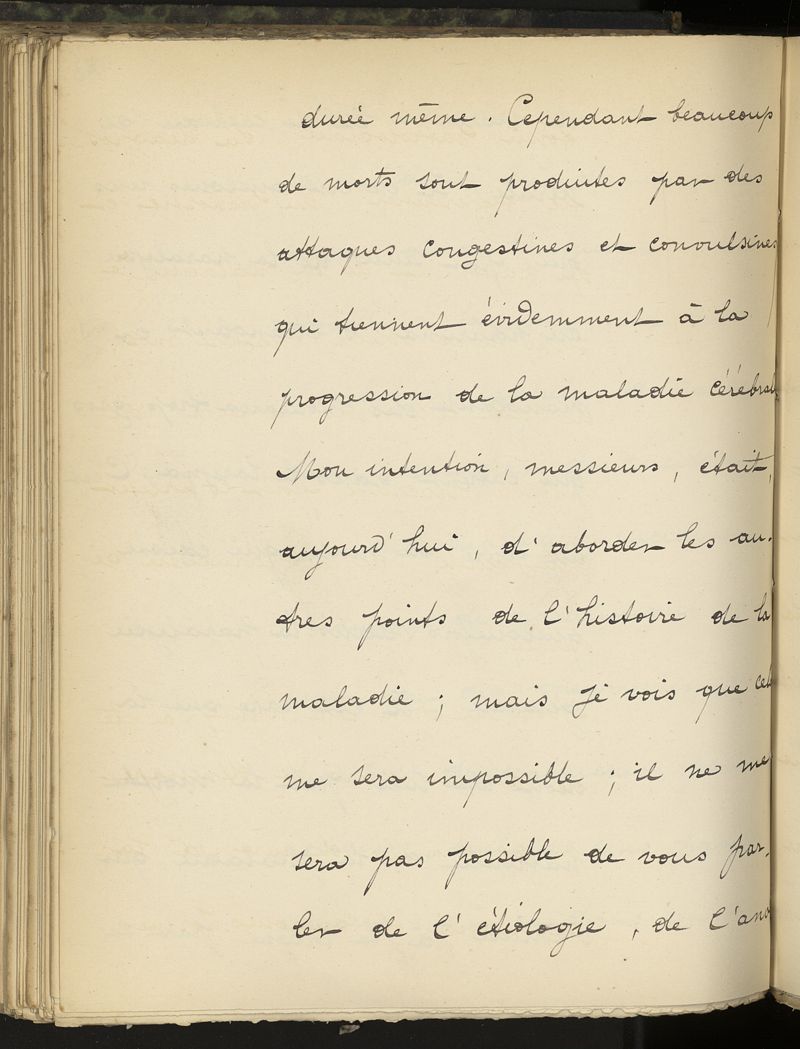 durée même. Cependant beaucoup
de morts sont produites par des
attaques congestives et convulsives
qui tiennent évidemment à la
progression de la maladie cérébral
Mon intention, messieurs, était,
aujourd'hui, d'aborder les au-
tres points de l'histoire de la
maladie; mais je vois que cela
me sera impossible; il ne me
sera pas possible de vous par-
ler de l'étiologie, de l'ana